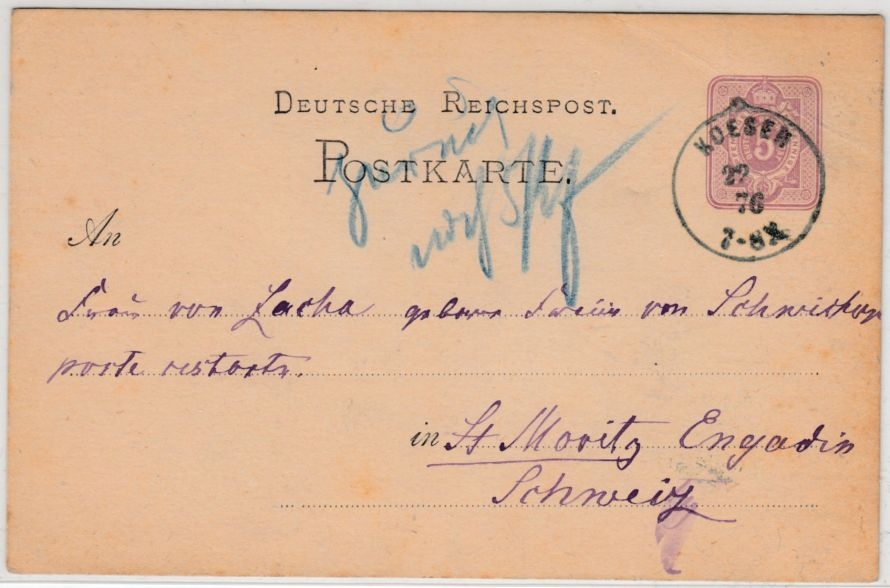 DEUTSCHE REICHSPOST.
POSTKARTE.
KOESEN
22
76
7-8
5
An
Frau von Zacha geborne Freiin von
poste restante.
in St Moritz Engadin
Schweiz